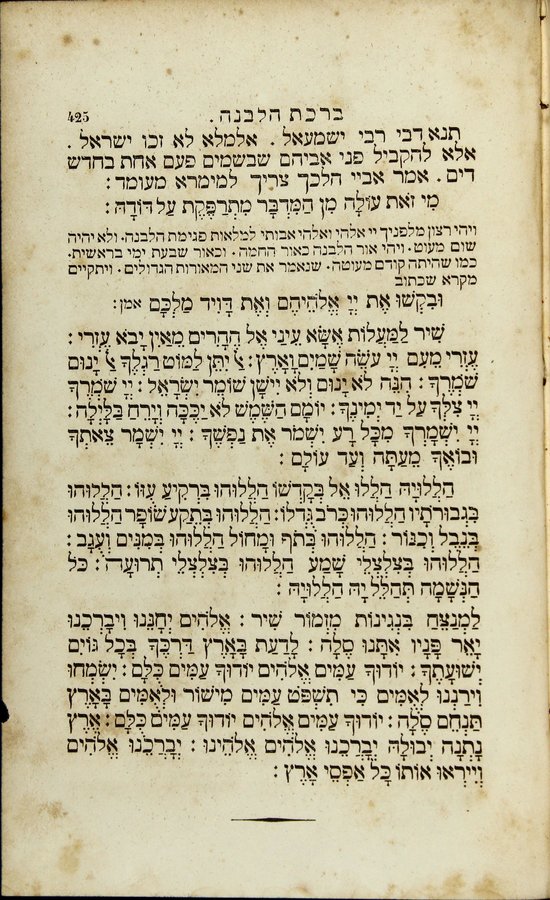 425 ברכת הלבנה.
תנא דבי רבי ישמעאל. אלמלא לא זכו ישראל.
אלא להקביל פני אביהם שבשמים פעם אחת בחדש
דים. אמר אביי הלכך צריך למימרא מעומד:
מִי זֹאת עוֹלָה מִן הַמִּדְבָּר מִתְרַפֶּקֶת עַל דּוֹדָהּ:
ויהי רצון מלפניך יי אלהי ואלהי אבותי למלאות פגימת הלבנה. ולא יהיה
שום מעוט. ויהי אור הלבנה כאור החמה. וכאור שבעת ימי בראשית.
כמו שהיתה קודם מעוטה. שנאמר את שני המאורות הגדולים. ויתקיים
מקרא שכתוב
וּבִקְשׁוּ אֶת יְיָ אֱלֹהֵיהֶם וְאֶת דָּוִיד מַלְכָּם אמן:
שִׁיר לַמַּעֲלוֹת אֶשָּׂא עֵינַי אֶל הֶהָרִים מֵאַיִן יָבֹא עֶזְרִי:
עֶזְרִי מֵעִם יְיָ עֹשֵׂה שָׁמַיִם וָאָרֶץ: אַל יִתֵּן לַמּוֹט רַגְלֶךָ אַל יָנוּם
שֹׁמְרֶךָ: הִנֵּה לֹא יָנוּם וְלֹא יִישָׁן שׁוֹמֵר יִשְׂרָאֵל: יְיָ שֹׁמְרֶךָ
יְיָ צִלְּךָ עַל יַד יְמִינֶךָ: יוֹמָם הַשֶּׁמֶשׁ לֹא יַכֶּכָּה וְיָרֵחַ בַּלָּיְלָה:
יְיָ יִשְׁמָרְךָ מִכָּל רָע יִשְׁמֹר אֶת נַפְשֶׁךָ: יְיָ יִשְׁמָר צֵאתְךָ
וּבוֹאֶךָ מֵעַתָּה וְעַד עוֹלָם:
הַלֲלוּיָהּ הַלֲלוּ אֵל בְּקָדְשׁוֹ הַלֲלוּהוּ בִּרְקִיעַ עֻזּוֹ: הַלֲלוּהוּ
בִּגְבוּרֹתָיו הַלֲלוּהוּ כְּרֹב גֻּדְלוֹ: הַלֲלוּהוּ בְּתֵקַע שׁוֹפָר הַלֲלוּהוּ
בְּנֵבֶל וְכִנּוֹר: הַלֲלוּהוּ בְּתֹף וּמָחוֹל הַלֲלוּהוּ בְּמִנִּים וְעֻגָב:
הַלֲלוּהוּ בְצִלְצְלֵי שָׁמַע הַלֲלוּהוּ בְּצִלְצְלֵי תְרוּעָה: כֹּל
הַנְּשָׁמָה תְּהַלֵּל יָהּ הַלֲלוּיָהּ:
לַמְנַצֵּחַ בִּנְגִינוֹת מִזְמוֹר שִׁיר: אֱלֹהִים יְחָנֵּנוּ וִיבָרְכֵנוּ
יָאֵר פָּנָיו אִתָּנוּ סֶלָה: לָדַעַת בָּאָרֶץ דַּרְכֶּךָ בְּכָל גּוֹיִם
יְשׁוּעָתֶךָ: יוֹדוּךָ עַמִּים אֱלֹהִים יוֹדוּךָ עַמִּים כֻּלָּם: יִשְׂמְחוּ
וִירַנְּנוּ לְאֻמִּים כִּי תִשְׁפֹּט עַמִּים מִישׁוֹר וּלְאֻמִּים בָּאָרֶץ
תַּנְחֵם סֶלָה: יוֹדוּךָ עַמִּים אֱלֹהִים יוֹדוּךָ עַמִּים כֻּלָּם: אֶרֶץ
נָתְנָה יְבוּלָהּ יְבָרְכֵנוּ אֱלֹהִים אֱלֹהֵינוּ: יְבָרְכֵנוּ אֱלֹהִים
וְיִירְאוּ אוֹתוֹ כָּל אַפְסֵי אָרֶץ: